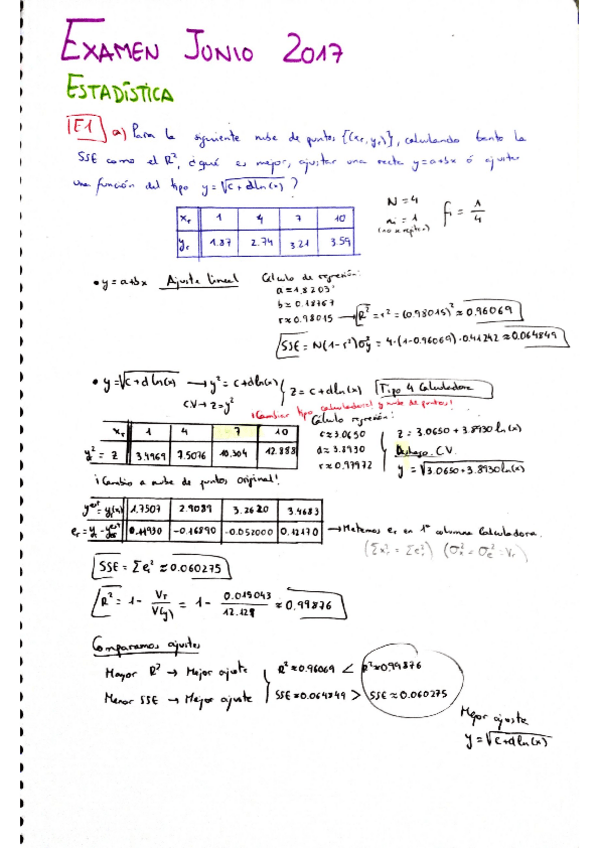 EXAMEN JUNIO 2017
ESTADÍSTICA
E1 a) Para la siguiente nube de puntos {(xr, yr)}, calculando tanto la
SSE como el R², ¿qué es mejor, ajustar una recta y=a+bx ó ajustar
una función del tipo y=√(c+dln(x))?
N=4
ni=1
(no se repiten)
fi = 1/4
xr 1 4 7 10
yr 1.87 2.74 3.21 3.59
• y=a+bx Ajuste lineal
Cálculo de regresión:
a=1.8203
b≈0.18767
r≈0.98015 → R²=r²=(0.98015)²≈0.96069
SSE = N(1-r²)σ²y = 4·(1-0.96069)·0.41242≈0.064849
• y=√(c+dln(x)) → y²=c+dln(x)
C.V → z=y²
z=c+dln(x) Tipo 4 Calculadora
¡Cambiar tipo calculadora! y nube de puntos!
Cálculo regresión:
xr 1 4 7 10
yr²=z 3.4969 7.5076 10.304 12.888
c≈3.0650
d≈3.8930
r≈0.97972
z=3.0650+3.8930ln(x)
Deshago C.V.
y=√(3.0650+3.8930ln(x))
¡Cambio a nube de puntos original!
1.7507 2.9089 3.2620 3.4683
0.11930 -0.16890 -0.052000 0.12170
→ Metemos er en 1ª columna Calculadora.
SSE = Σei² ≈ 0.060275
R² = 1 - Vr/V(y) = 1 - 0.015043/12.128 ≈ 0.99876
Comparamos ajustes
Mayor R² → Mejor ajuste R²≈0.96069 < R²≈0.99876
Menor SSE → Mejor ajuste SSE≈0.064849 > SSE≈0.060275
Mejor ajuste
y=√(c+dln(x))